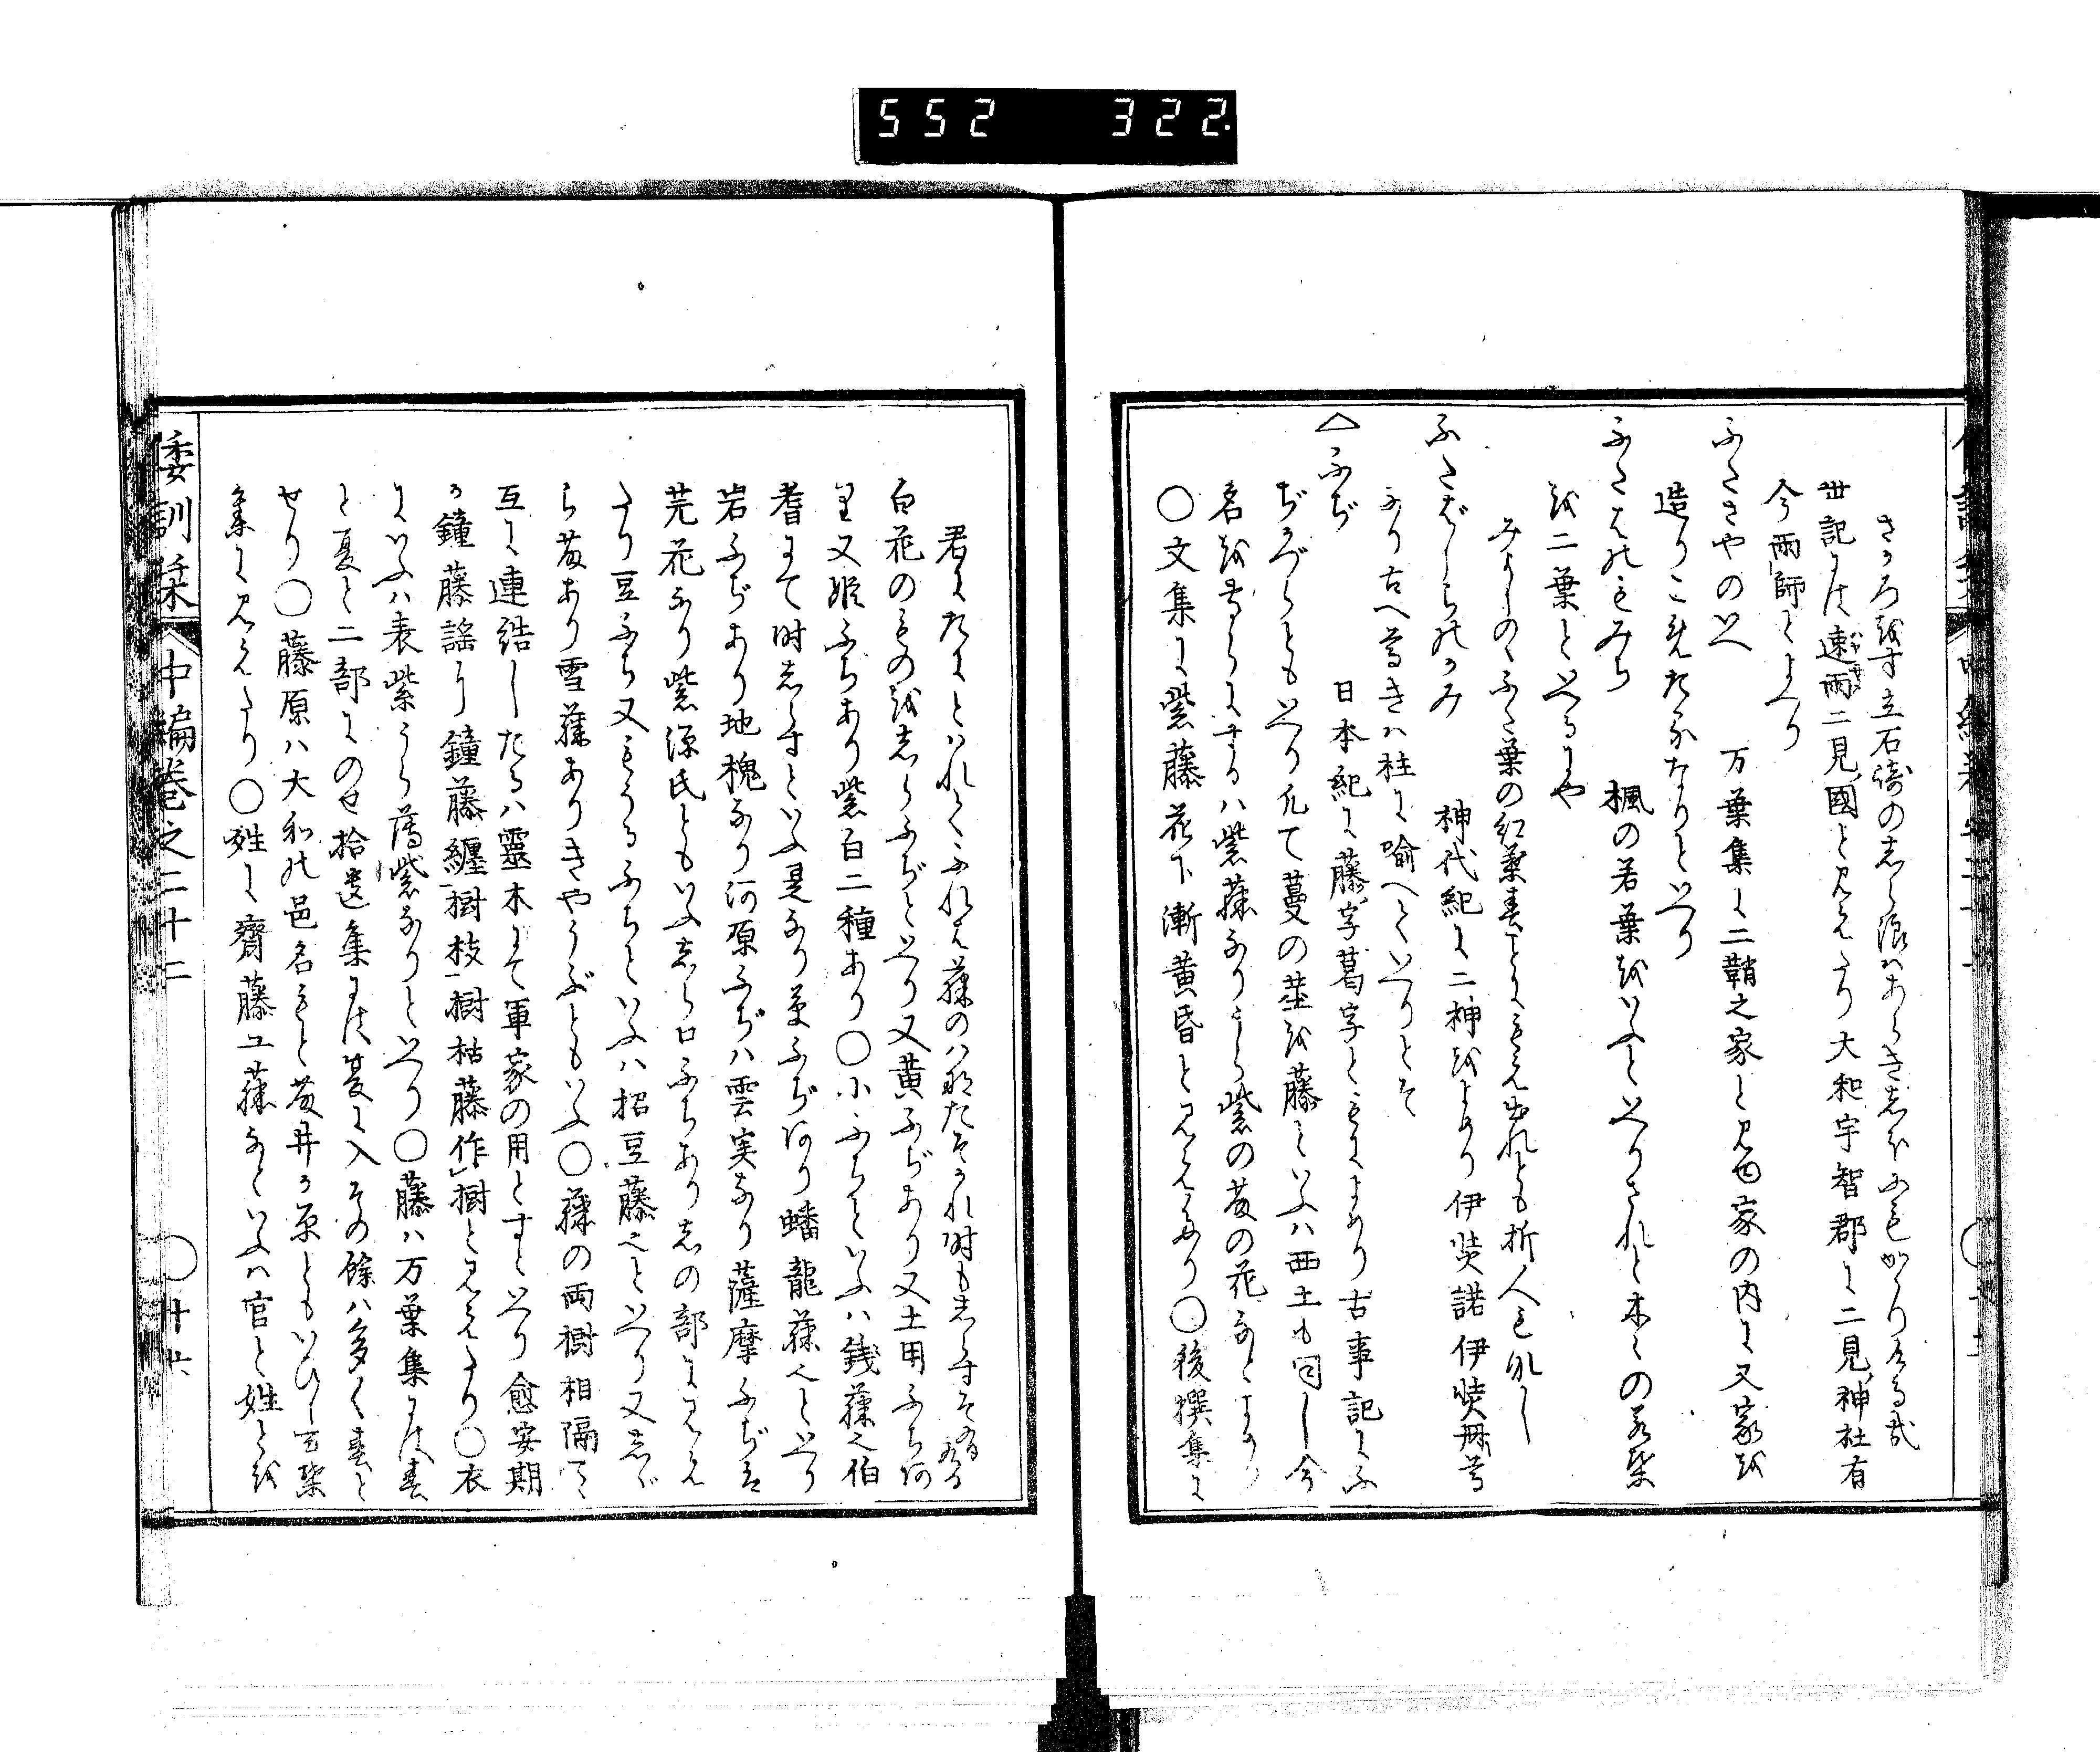 552 322
世記には速雨二見國と見えたり大和宇智郡に二見神社有
今雨師とよへり
ふたさやのいへ 万葉集に二鞘之家と見ゆ家の内に又家を
造りこめたるなりといへり
ふたはのもみち 楓の若葉をいふといへりされと木々の若葉
を二葉といへるにや
みよしのゝふた葉の紅葉春とにもえ出れとも折人もなし
ふたばしらのかみ 神代紀に二神をよめり伊弉諾伊弉冊尊
なり古へ尊きハ柱に喩へていへりとそ
△ふぢ 日本紀に藤字葛字ともによめり古事記にふ
ぢかづらともいへり凡て蔓の茎を藤といふハ西土も同し今
名を専らにするハ紫藤なりうら紫の藤の花なとよめり
○文集に紫藤花下漸黄昏と見えたり○後撰集に
君にたにとはれてふれは藤の花たそかれ時もしらすそ有ける
白花のものをしらふぢといへり又黄ふぢあり又土用ふち
又姫ふちあり紫白二種あり○小ふちといふハ銭藤也伯
耆にて時しらすといふ是なり
蟠龍藤也といへり
岩ふぢあり地槐なり河原ふぢハ雲実なり薩摩ふぢは
芫花なり紫源氏ともいふしら口ふちあり志の部に見え
たり豆ふち又もうるふちといふハ招豆藤也といへり又しゞ
ら藤あり雪藤ありきやうぶともいふ○藤の両樹相隔て
互に連結したるハ靈木にて軍家の用とすといへり愈安期
か鐘藤謡に鐘藤纏樹枝樹枯藤作樹と見えたり○衣
にいふハ表紫うら薄紫なりといへり○藤ハ万葉集には春
と夏と二部にのせ拾遺集には夏に入その餘ハ多く春と
せり○藤原ハ大和の邑名もと藤井か原ともいひし万葉
集に見えたり○姓に齋藤工藤なといふハ官と姓とを
倭訓栞 中編巻之二十二 ○廿六